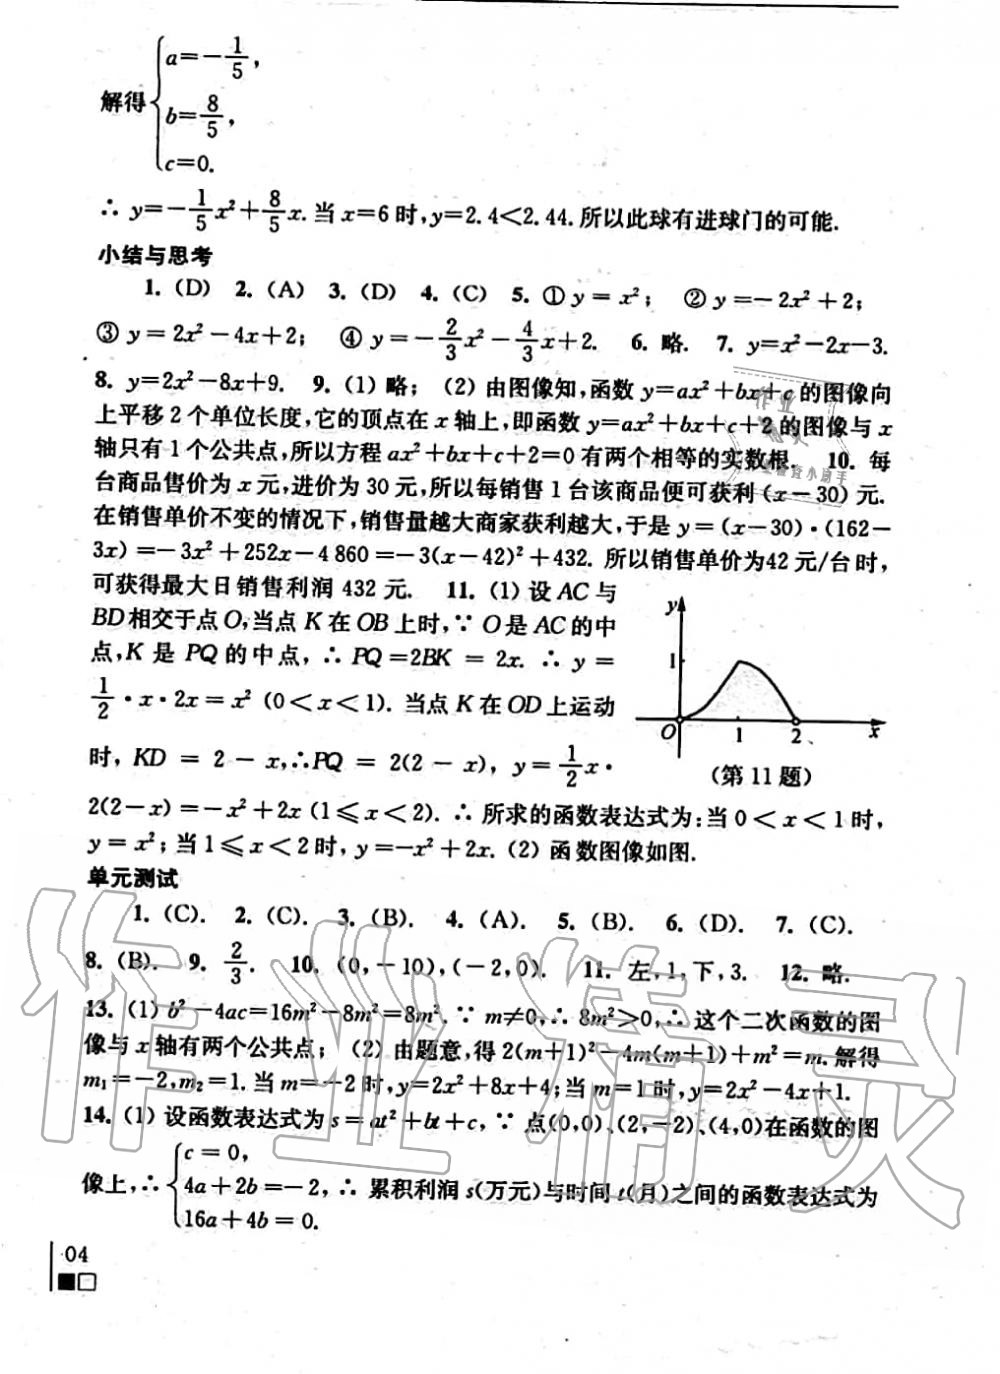 解得{a=-1/5,
b=8/5,
c=0.
∴ y=-1/5x²+8/5x.当 x=6 时,y=2.4<2.44.所以此球有进球门的可能.
小结与思考
1. (D) 2. (A) 3. (D) 4. (C) 5. ① y = x²; ② y =-2x²+2;
③ y = 2x²-4x+2; ④ y=-2/3x²-4/3x+2. 6. 略. 7. y=x²-2x-3.
8. y=2x²-8x+9. 9. (1) 略; (2) 由图像知,函数 y=ax²+bx+c 的图像向
上平移 2 个单位长度,它的顶点在 x 轴上,即函数 y=ax²+bx+c+2 的图像与 x
轴只有 1 个公共点,所以方程 ax²+bx+c+2=0 有两个相等的实数根. 10. 每
台商品售价为 x 元,进价为 30 元,所以每销售 1 台该商品便可获利 (x-30) 元.
在销售单价不变的情况下,销售量越大商家获利越大,于是 y=(x-30)·(162-
3x) =-3x²+252x-4 860=-3(x-42)²+432. 所以销售单价为42 元/台时,
可获得最大日销售利润 432 元. 11. (1) 设 AC 与
BD相交于点 O,当点 K 在 OB 上时,∵ O 是 AC 的中
点,K 是 PQ 的中点, ∴ PQ=2BK = 2x. ∴ y =
1/2·x·2x=x² (0<x<1). 当点 K 在 OD 上运动
时, KD = 2-x,∴PQ = 2(2-x), y = 1/2x·
2(2-x)=-x²+2x (1⩽x<2). ∴ 所求的函数表达式为:当 0<x<1 时,
y = x²; 当 1⩽x<2 时, y=-x²+2x. (2) 函数图像如图.
y
1
O 1 2 x
(第 11 题)
单元测试
1. (C). 2. (C). 3. (B). 4. (A). 5. (B). 6. (D). 7. (C).
8. (B). 9. 2/3. 10. (0,-10),(-2,0). 11. 左,1,下,3. 12. 略.
13. (1) b²-4ac=16m²-8m²=8m². ∵ m≠0,∴ 8m²>0,∴ 这个二次函数的图
像与 x 轴有两个公共点; (2) 由题意,得 2(m+1)²-4m(m+1)+m²=m.解得
m₁=-2,m₂=1.当 m=-2 时,y=2x²+8x+4;当 m=1 时,y=2x²-4x+1.
14. (1) 设函数表达式为 s=at²+bt+c, ∵ 点(0,0)、(2,-2)、(4,0)在函数的图
像上,∴{c = 0,
4a+2b=-2, ∴ 累积利润 s(万元)与时间 t(月)之间的函数表达式为
16a+4b = 0.
04
作业精灵